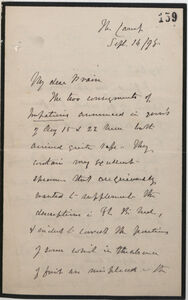 159
The Camp
Sept. 14/98
My dear Prain
The two consignments of
Impatiens announced in yours
of Aug 15 & 22 have both
arrived quite safe - They
contain very excellent
specimens that are grievously
wanted to supplement the
descriptions in Fl. Br. Ind.,
& indeed to correct the positions
of some which in the absence
of fruit are misplaced - the